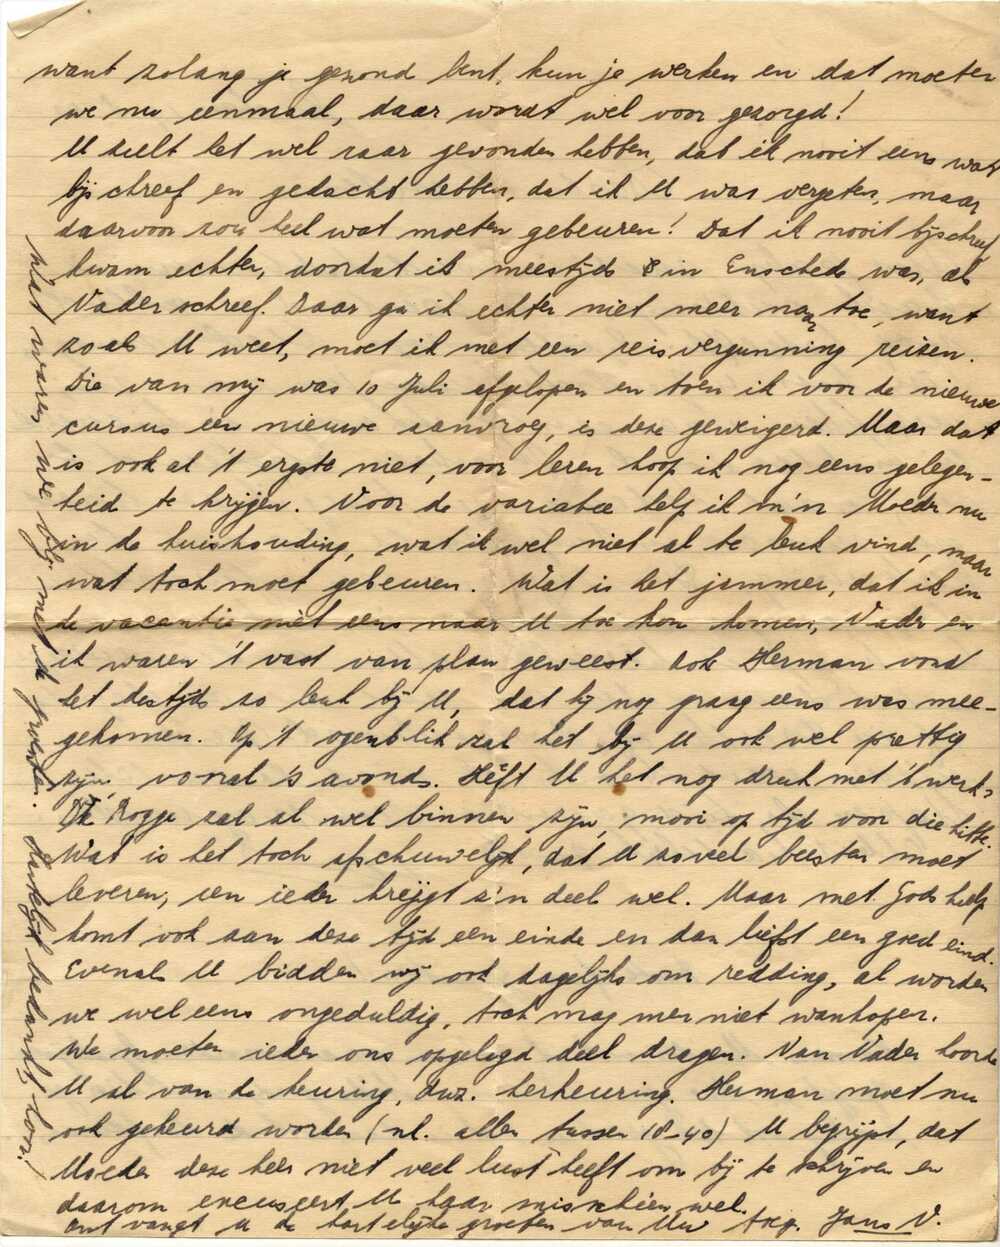 want zolang je gezond bent, kun je werken en dat moeten
we nu eenmaal, daar wordt wel voor gezorgd!
U zult het wel raar gevonden hebben, dat ik nooit eens wat
bijschreef en gedacht hebben, dat ik U was vergeten, maar
daarvoor zou heel wat moeten gebeuren! Dat ik nooit bijschreef
kwam echter, doordat ik meestijds in Enschede was, als
Vader schreef. Daar ga ik echter niet meer naar toe, want
zoals U weet, moet ik met een reisvergunning reizen.
Die van mij was 10 Juli afgelopen en toen ik voor de nieuwe
cursus een nieuwe aanvroeg, is deze geweigerd. Maar dat
is ook al 't ergste niet, voor leren hoop ik nog eens gelegen-
heid te krijgen. Voor de variatie help ik m'n Moeder nu
in de huishouding, wat ik wel niet al te leuk vind, maar
wat toch moet gebeuren. Wat is het jammer, dat ik in
de vacantie niet eens naar U toe kon komen, Vader en
ik waren 't vast van plan geweest. Ook Herman vond
het destijds zo leuk bij U, dat hij nog graag eens was mee-
gekomen. Op 't ogenblik zal het bij U ook wel prettig
zijn, vooral 's avonds. Heeft U het nog druk met 't werk?
De Rogge zal al wel binnen zijn, mooi op tijd voor die hitte.
Wat is het toch afschuwelijk, dat U zoveel beesten moet
leveren, een ieder krijgt z'n deel wel. Maar met Gods hulp
komt ook aan deze tijd een einde en dan liefst een goed eind.
Evenals U bidden wij ook dagelijks om redding, al worden
we wel eens ongeduldig, toch mag men niet wanhopen.
We moeten ieder ons opgelegd deel dragen. Van Vader hoorde
U al van de keuring, d.w.z. herkeuring. Herman moet nu
ook gekeurd worden (nl. allen tussen 18-40) U begrijpt, dat
Moeder deze keer niet veel lust heeft om bij te schrijven en
daarom excuseert U haar misschien wel.
Ontvangt U de hartelijke groeten van Uw toeg. Jans V.
Wat waren we blij met de groenten. Hartelijk bedankt hoor!